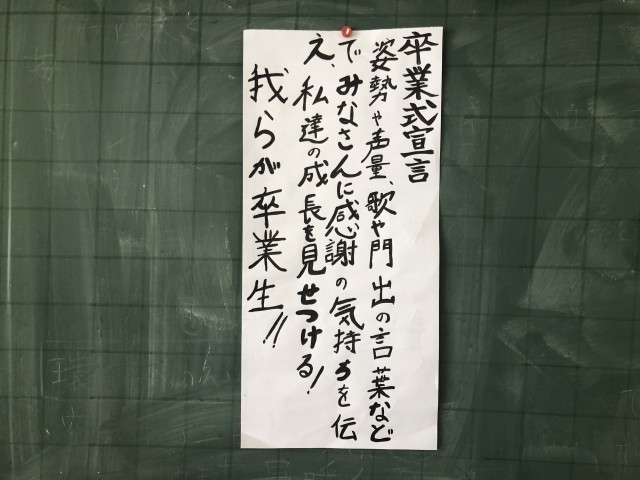 卒業式宣言
姿勢や声量、歌や門出の言葉など
でみなさんに感謝の気持ちを伝
え、私達の成長を見せつける!
我らが卒業生!!